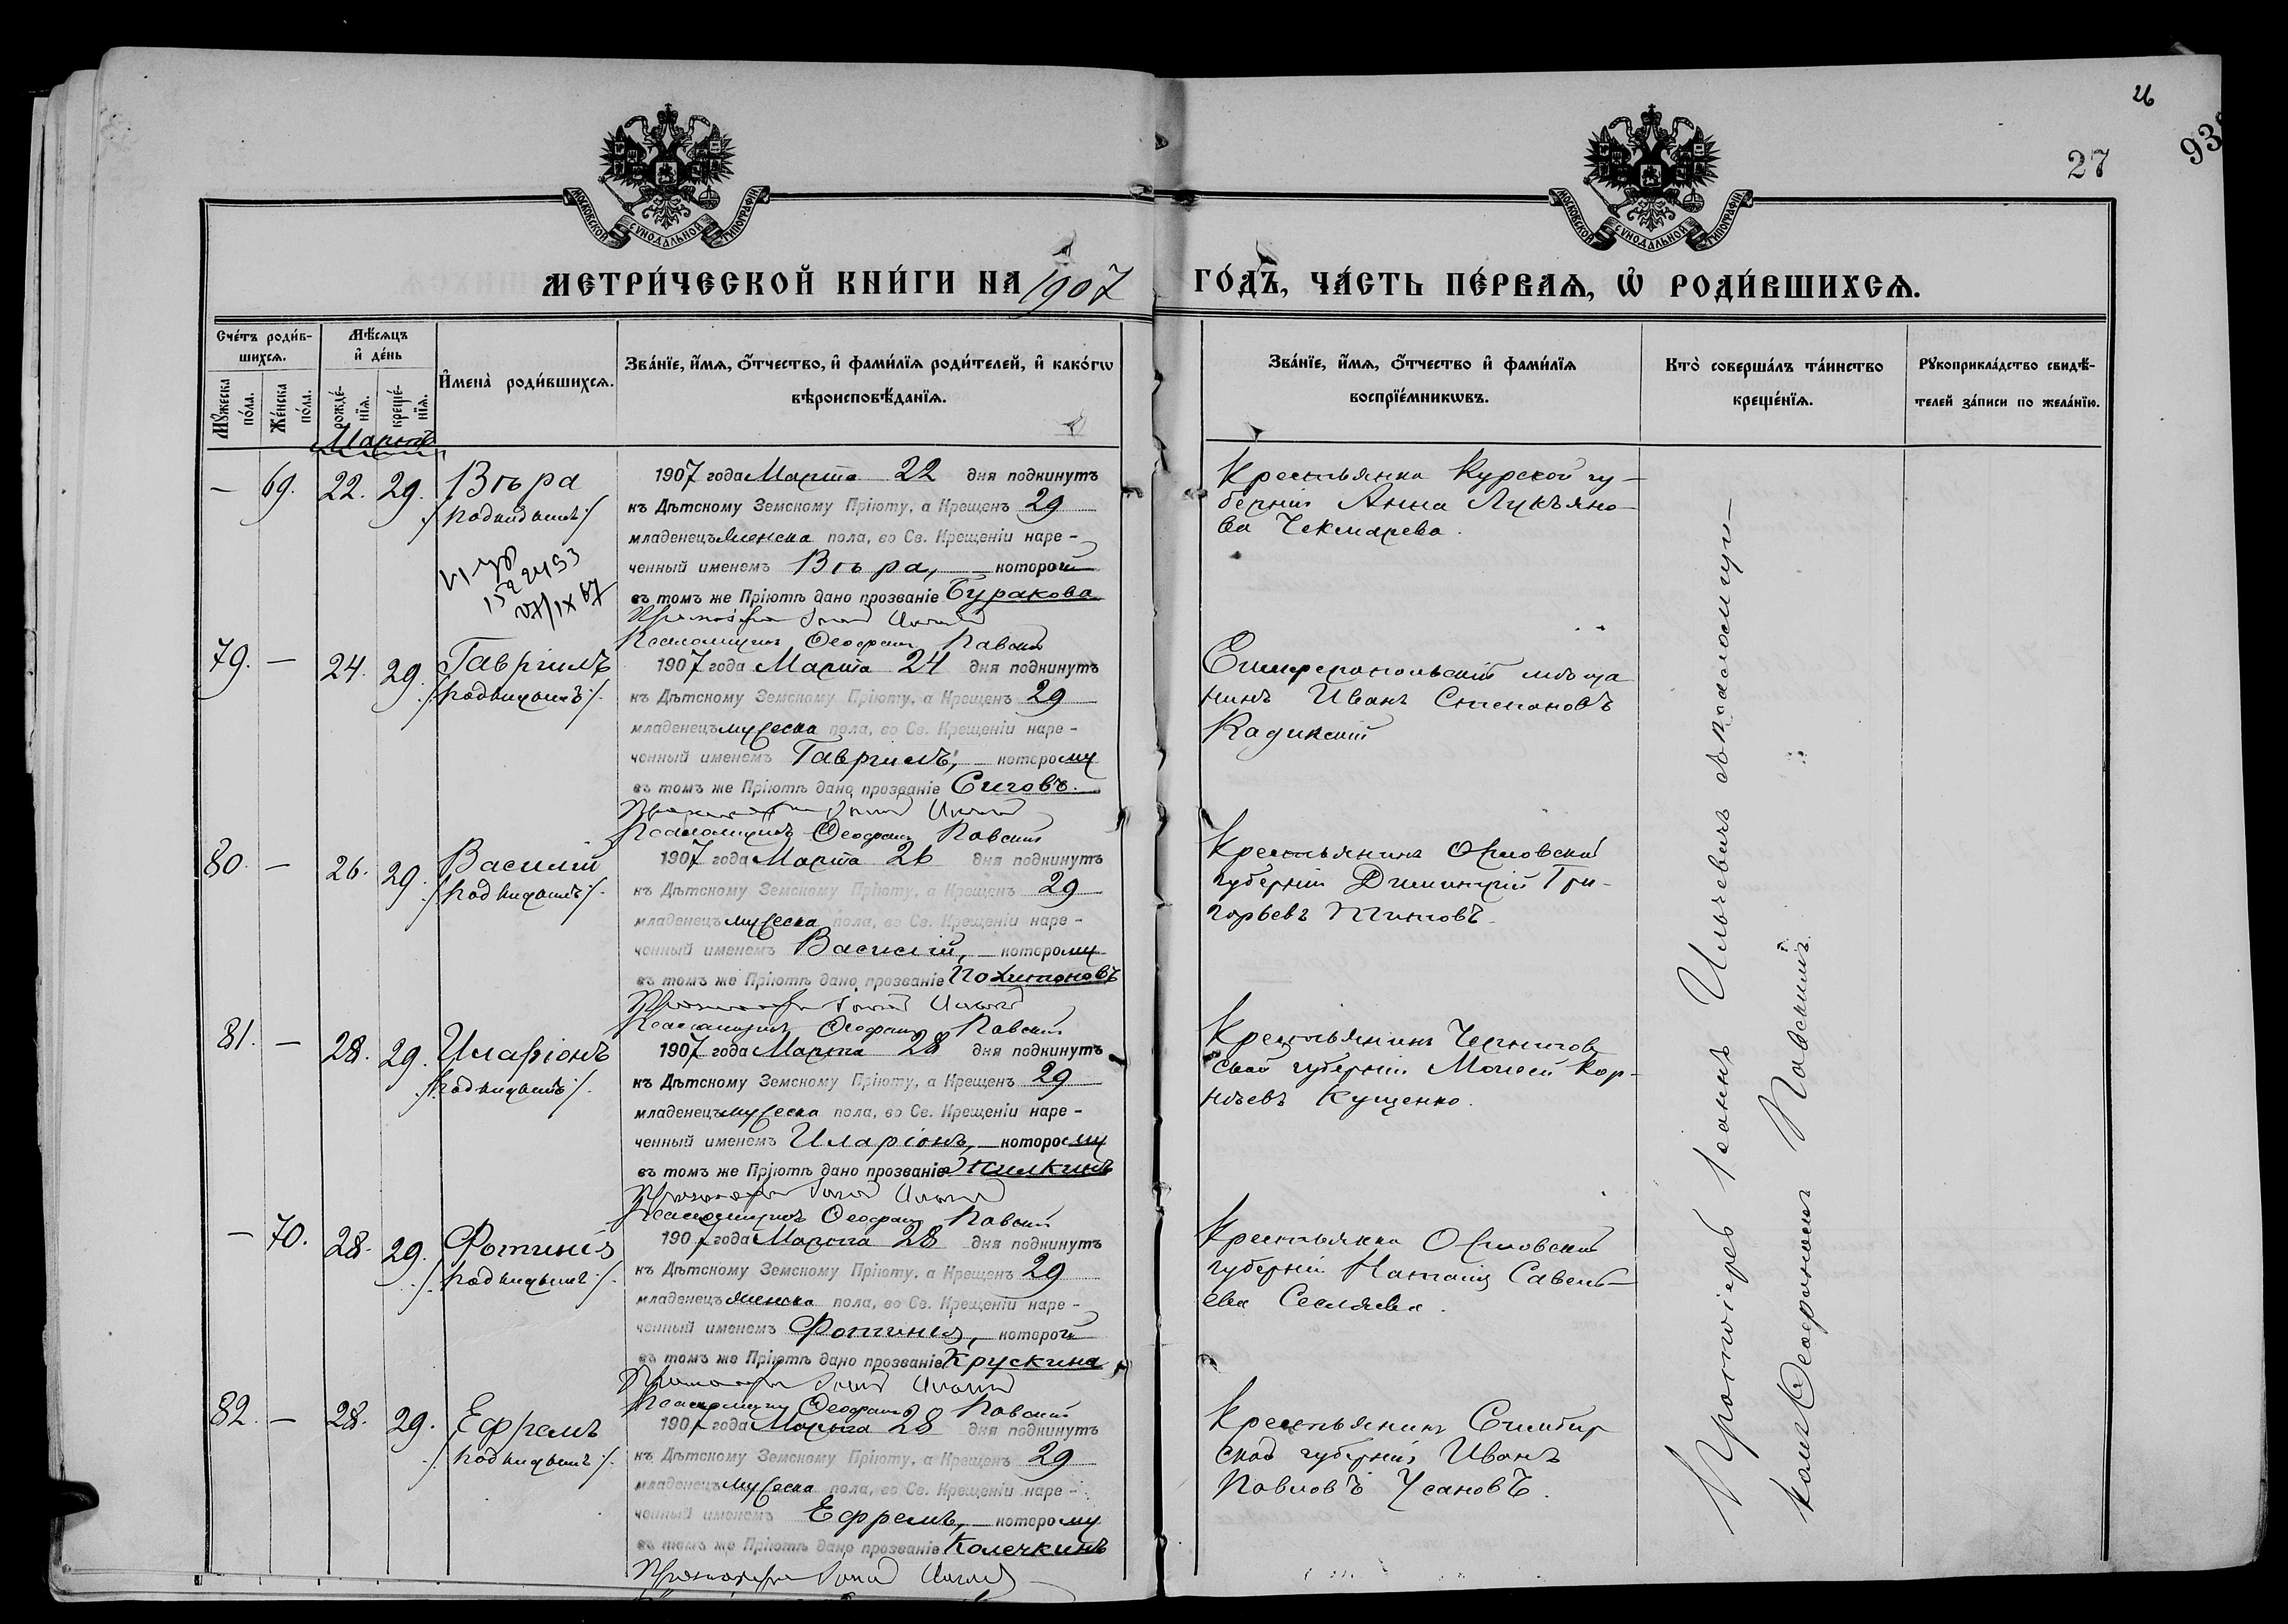 26
27
93
МОСКОВСКОЙ СУНОДАЛЬНОЙ ТИПОГРАФІИ
МОСКОВСКОЙ СУНОДАЛЬНОЙ ТИПОГРАФІИ
МЕТРИ́ЧЕСКОЙ КНИ́ГИ НА 1907 ГО́ДЪ, ЧА́СТЬ ПЕ́РВАѦ, Ѡ РОДИ́ВШИХСѦ.
Сче́тъ роди́в-
шихсѧ.
Мꙋ́жеска по́ла.
Же́нска по́ла.
Мѣ́сѧцъ
и҆ де́нь
рожде́-нїѧ.
креще́-нїѧ.
И҆мена̀ роди́вшихсѧ.
Зва́нїе, и҆́мѧ, ѻ҆́тчество, и҆ фами́лїѧ роди́телей, и҆ како́гѡ
вѣроисповѣ́данїѧ.
Зва́нїе, и҆́мѧ, ѻ҆́тчество и҆ фами́лїѧ
воспрїе́мникѡвъ.
Кто̀ соверша́лъ та́инство
креще́нїѧ.
Рꙋкоприкла́дство свидѣ́-
телей за́писи по жела́нїю.
Мартъ
— 69. 22. 29. Вѣра
/подкидышъ/
1907 года Марта 22 дня подкинутъ
къ Дѣтскому Земскому Пріюту, а Крещенъ 29
младенецъ женска пола, во Св. Крещеніи наре-
ченный именемъ Вѣра, — которой
въ томъ же Пріютѣ дано прозваніе Буракова
Псаломщикъ Ѳеофанъ Павскій
Крестьянка Курской гу-
берніи Анна Лукьяно-
ва Чекмарева.
79. — 24. 29. Гавріилъ
/подкидышъ/.
1907 года Марта 24 дня подкинутъ
къ Дѣтскому Земскому Пріюту, а Крещенъ 29
младенецъ мужеска пола, во Св. Крещеніи наре-
ченный именемъ Гавріилъ, — которому
въ томъ же Пріютѣ дано прозваніе Сиговъ.
Псаломщикъ Ѳеофанъ Павскій
Симферопольскій мѣща
нинъ Иванъ Степановъ
Кадинскій
80. — 26. 29. Василій
/подкидышъ/.
1907 года Марта 26 дня подкинутъ
къ Дѣтскому Земскому Пріюту, а Крещенъ 29
младенецъ мужеска пола, во Св. Крещеніи наре-
ченный именемъ Василій, — которому
въ томъ же Пріютѣ дано прозваніе Похитоновъ
Псаломщикъ Ѳеофанъ Павскій
Крестьянинъ Орловской
губерніи Димитрій Гри-
горьевъ Титовъ.
81. — 28. 29. Иларіонъ
/подкидышъ/.
1907 года Марта 28 дня подкинутъ
къ Дѣтскому Земскому Пріюту, а Крещенъ 29
младенецъ мужеска пола, во Св. Крещеніи наре-
ченный именемъ Иларіонъ, — которому
въ томъ же Пріютѣ дано прозваніе Жилкинъ
Псаломщикъ Ѳеофанъ Павскій
Крестьянинъ Чернигов
ской губерніи Моисей Кор-
нѣевъ Кущенко.
— 70. 28. 29. Фотинія
/подкидышъ/.
1907 года Марта 28 дня подкинутъ
къ Дѣтскому Земскому Пріюту, а Крещенъ 29
младенецъ женска пола, во Св. Крещеніи наре-
ченный именемъ Фотинія, — которой
въ томъ же Пріютѣ дано прозваніе Крускина
Псаломщикъ Ѳеофанъ Павскій
Крестьянка Орловской
губерніи Наталія Савель-
ева
82. — 28. 29. Ефремъ
/подкидышъ/.
1907 года Марта 28 дня подкинутъ
къ Дѣтскому Земскому Пріюту, а Крещенъ 29
младенецъ мужеска пола, во Св. Крещеніи наре-
ченный именемъ Ефремъ, — которому
въ томъ же Пріютѣ дано прозваніе Колечкинъ
Крестьянинъ Симбир
ской губерніи Иванъ
Павловъ Усановъ.
Протоіерей Іоаннъ Ильчевичъ съ псаломщи-
комъ Ѳеофаномъ Павскимъ.